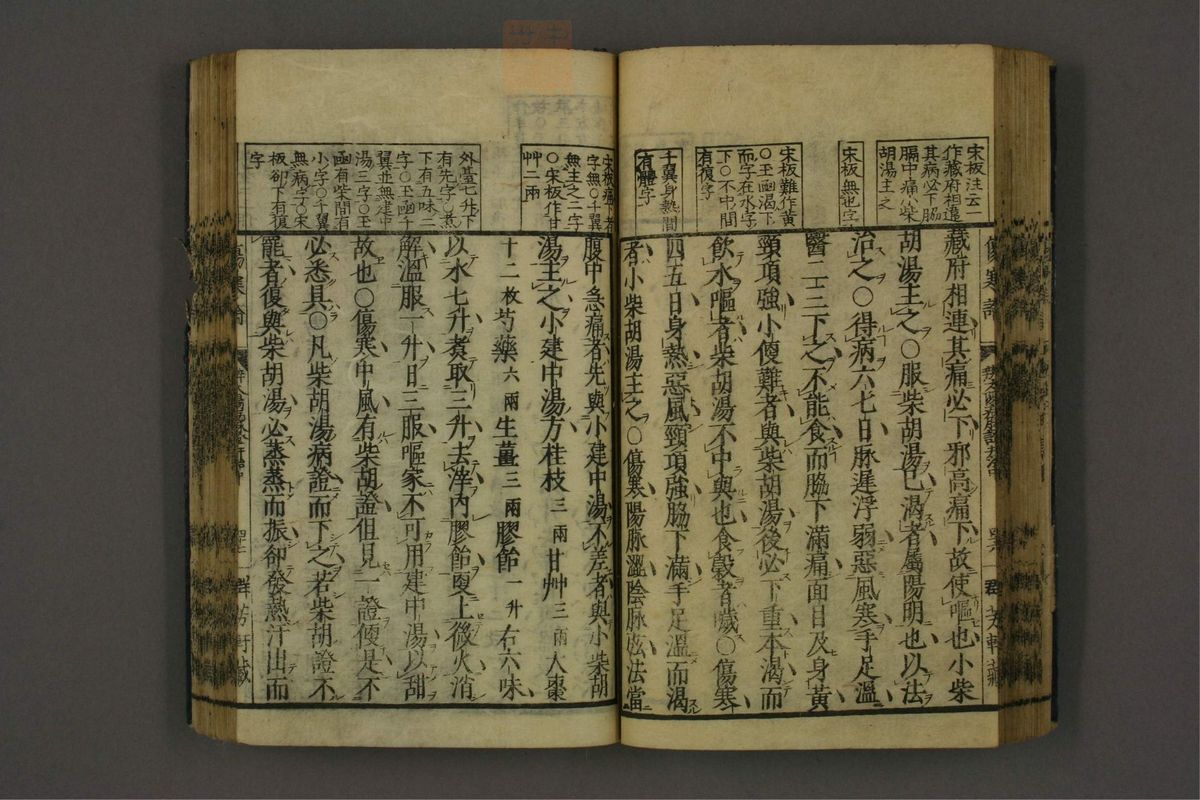 宋板注云一
作藏府相違
其病必下脇
膈中痛○柴
胡湯主之
宋板無也字
宋板難作黃
○玉函渴下
而字在水字
下○不中間
有復字
千翼身熱間
有體字
藏府相連其痛必下邪高痛下故使嘔也小柴
胡湯主之○服柴胡湯已渴者屬陽明也以法
治之○得病六七日脉遲浮弱惡風寒手足溫
醫二三下之不能食而脇下滿痛面目及身黃
頸項強小便難者與柴胡湯後必下重本渴而
飲水嘔者柴胡湯不中與也食穀者噦○傷寒
四五日身熱惡風頸項強脇下滿手足溫而渴
者小柴胡湯主之○傷寒陽脉澀陰脉弦法當
宋板痛下者
字無○千翼
無主之二字
○宋板作甘
艸二兩
外臺七升下
有先字○煮
下有五味二
字○玉函千
翼並無建中
湯三字○玉
函有柴間有
小字○千翼
無病字○宋
板卻下有復
字
腹中急痛者先與小建中湯不差者與小柴胡
湯主之小建中湯方桂枝三兩甘艸三兩大棗
十二枚芍藥六兩生薑三兩膠飴一升右六味
以水七升煮取三升去滓內膠飴更上微火消
解溫服一升日三服嘔家不可用建中湯以甜
故也○傷寒中風有柴胡證但見一證便是不
必悉具○凡柴胡湯病證而下之若柴胡證不
罷者復與柴胡湯必蒸蒸而振卻發熱汗出而
傷寒論
群芳軒藏